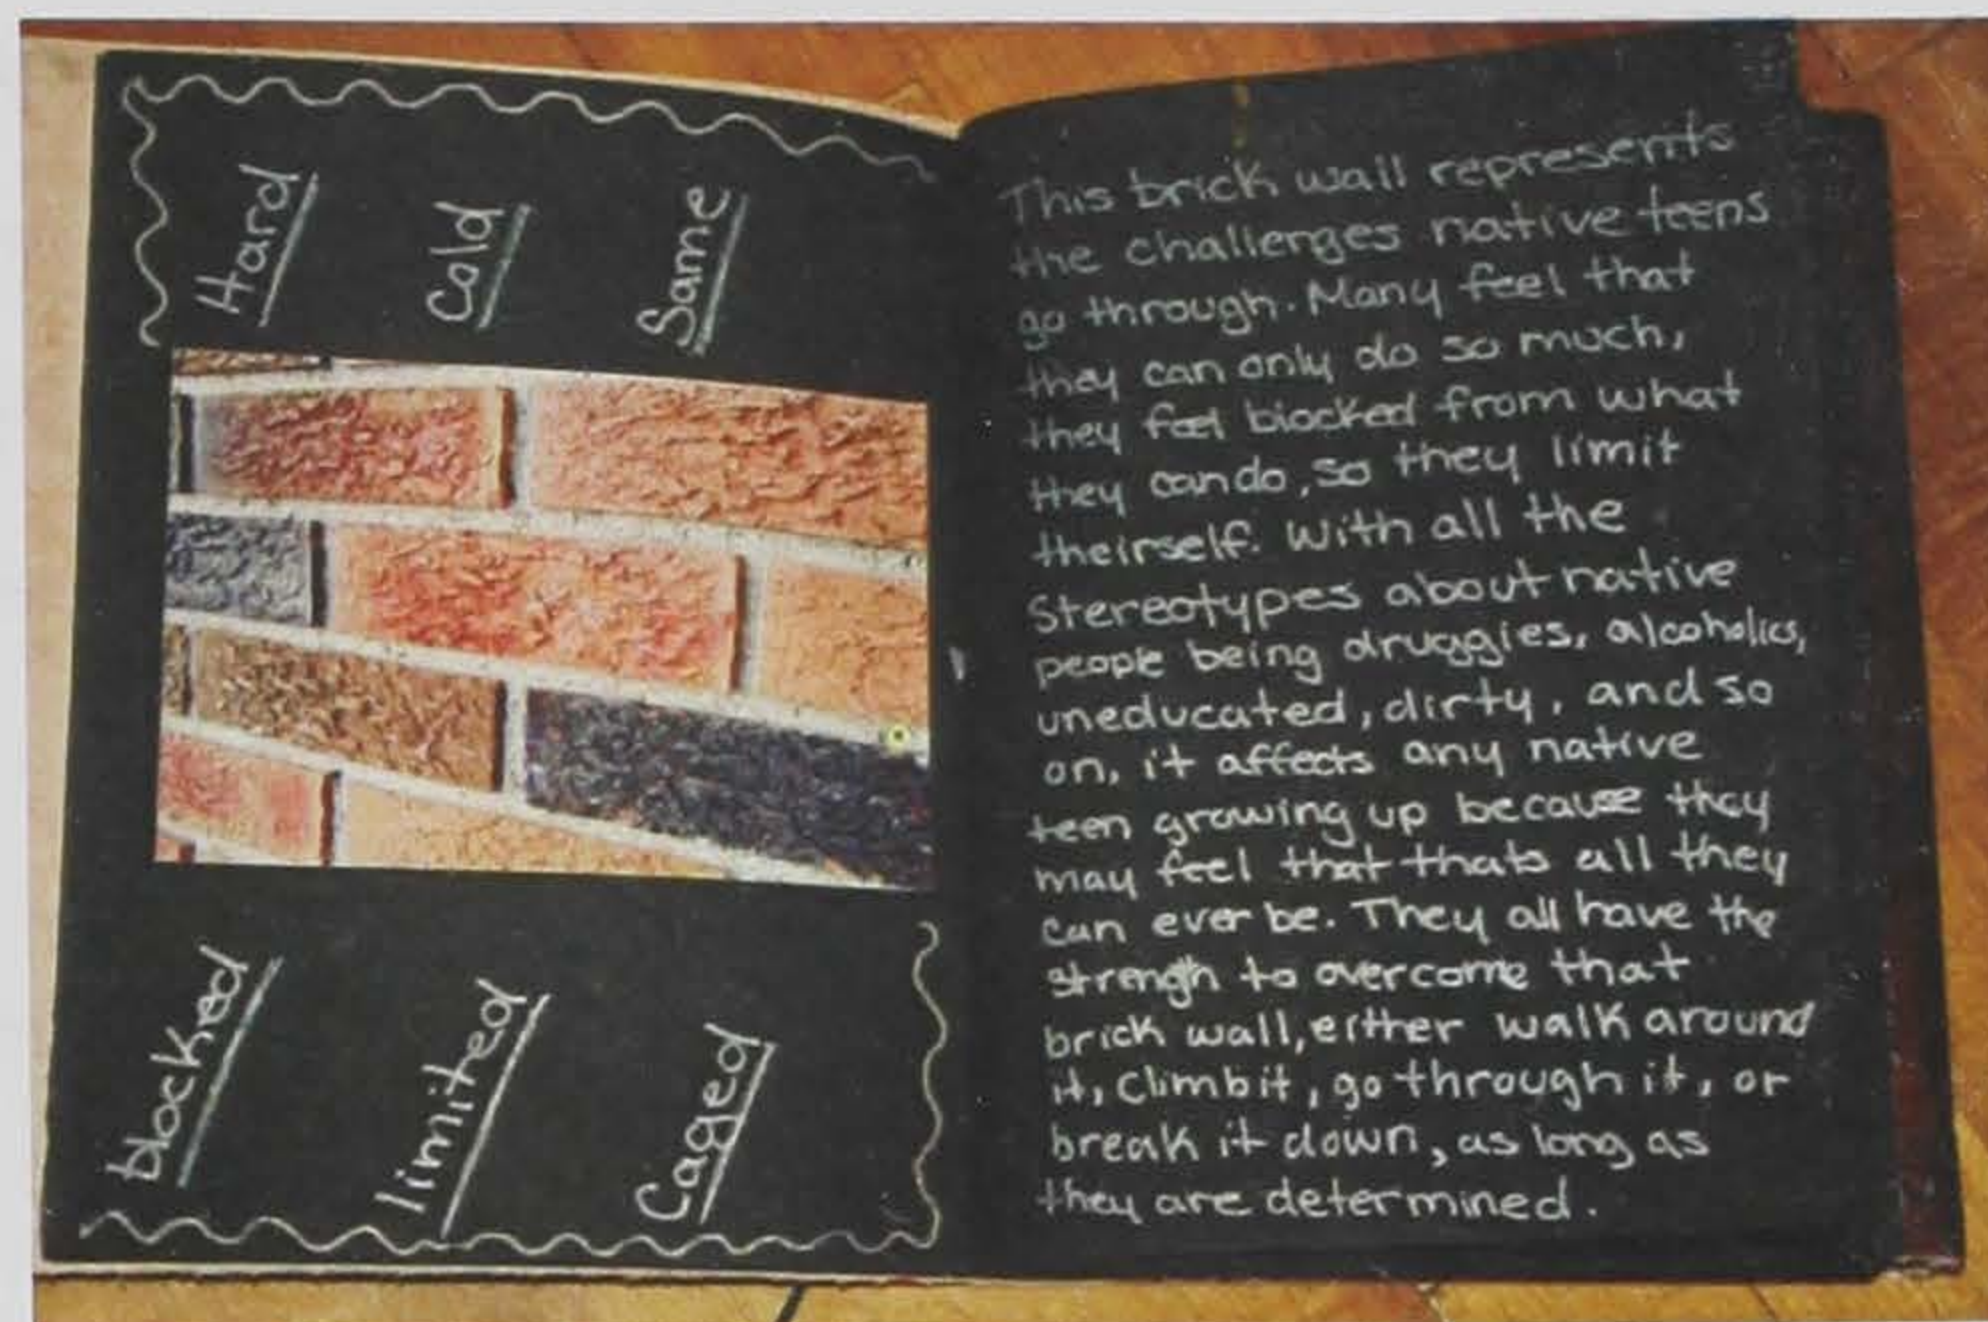 Hard
Cold
Same
blocked
limited
Caged
This brick wall represents
the challenges native teens
go through. Many feel that
they can only do so much,
they feel blocked from what
they can do, so they limit
theirself. With all the
Stereotypes about native
people being druggies, alcoholics,
uneducated, dirty, and so
on, it affects any native
teen growing up because they
may feel that thats all they
can ever be. They all have the
strengh to overcome that
brick wall, either walk around
it, climb it, go through it, or
break it down, as long as
they are determined.